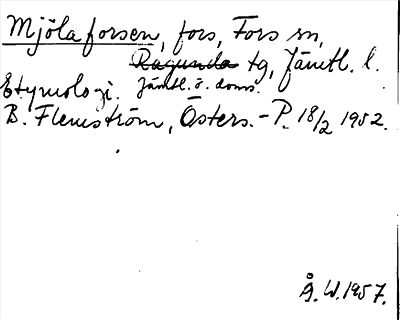 Mjölaforsen, fors, Fors sn,
Ragunda tg, Jämtl. l.
Jämtl. ö. doms.
Etymologi.
B. Flemström, Östers.-P. 18/2 1952.
Å. W. 1957.